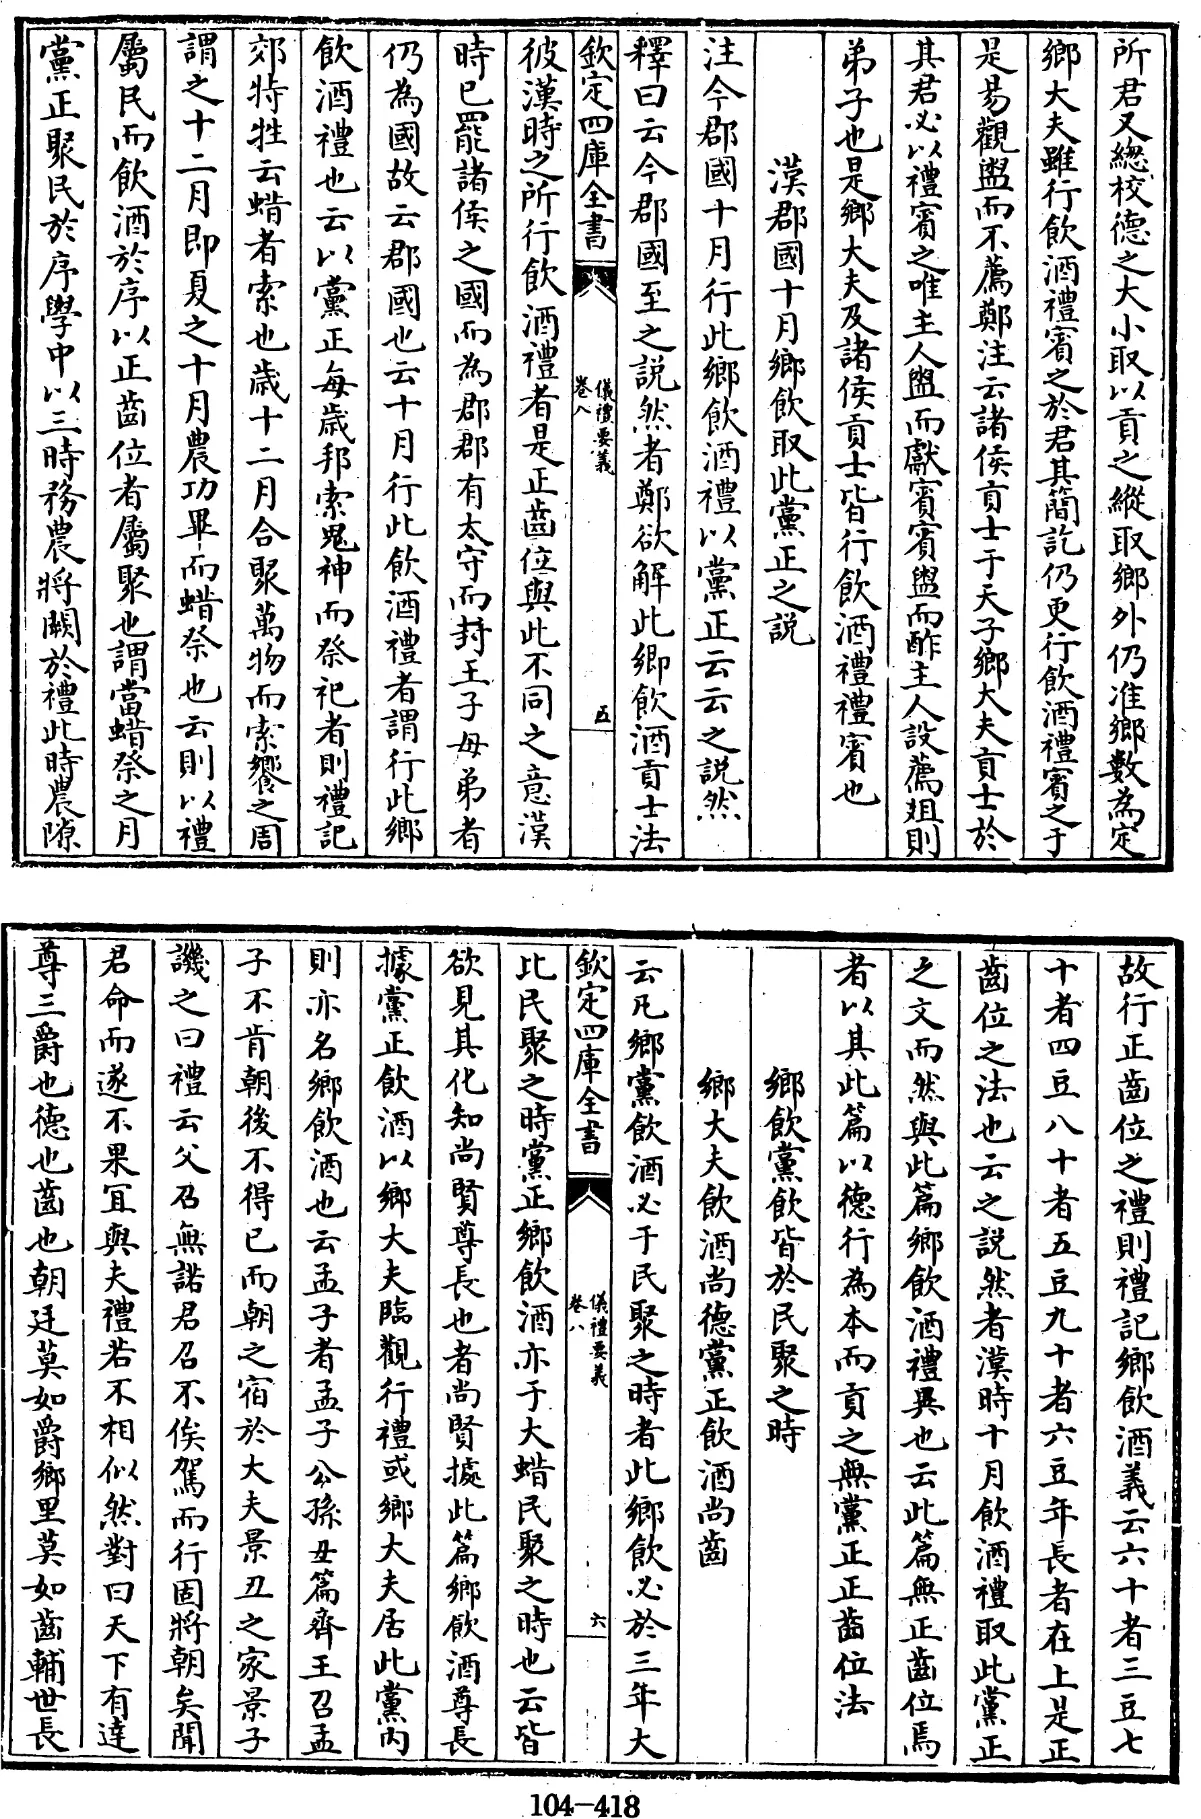 所君又總校德之大小取以貢之縱取鄉外仍准鄉數為定
鄉大夫雖行飲酒禮賓之於君其簡訖仍更行飲酒禮賓之于
是易觀盥而不薦鄭注云諸侯貢士于天子鄉大夫貢士於
其君必以禮賓之唯主人盥而獻賓賓盥而酢主人設薦俎則
弟子也是鄉大夫及諸侯貢士皆行飲酒禮禮賓也
漢郡國十月鄉飲取此黨正之説
注今郡國十月行此鄉飲酒禮以黨正云云之説然
釋曰云今郡國至之説然者鄭欲解此鄉飲酒貢士法
欽定四庫全書
儀禮要義
卷八
五
彼漢時之所行飲酒禮者是正齒位與此不同之意漢
時已罷諸侯之國而為郡郡有太守而封王子母弟者
仍為國故云郡國也云十月行此飲酒禮者謂行此鄉
飲酒禮也云以黨正每歲邦索鬼神而祭祀者則禮記
郊特牲云蜡者索也歲十二月合聚萬物而索饗之周
謂之十二月即夏之十月農功畢而蜡祭也云則以禮
屬民而飲酒於序以正齒位者屬聚也謂當蜡祭之月
黨正聚民於序學中以三時務農將闕於禮此時農隙
故行正齒位之禮則禮記鄉飲酒義云六十者三豆七
十者四豆八十者五豆九十者六豆年長者在上是正
齒位之法也云之説然者漢時十月飲酒禮取此黨正
之文而然與此篇鄉飲酒禮異也云此篇無正齒位焉
者以其此篇以德行為本而貢之無黨正正齒位法
鄉飲黨飲皆於民聚之時
鄉大夫飲酒尚德黨正飲酒尚齒
云凡鄉黨飲酒必于民聚之時者此鄉飲必於三年大
欽定四庫全書
儀禮要義
卷八
六
比民聚之時黨正鄉飲酒亦于大蜡民聚之時也云皆
欲見其化知尚賢尊長也者尚賢據此篇鄉飲酒尊長
據黨正飲酒以鄉大夫臨觀行禮或鄉大夫居此黨內
則亦名鄉飲酒也云孟子者孟子公孫丑篇齊王召孟
子不肯朝後不得已而朝之宿於大夫景丑之家景子
譏之曰禮云父召無諾君召不俟駕而行固將朝矣聞
君命而遂不果宜與夫禮若不相似然對曰天下有達
尊三爵也德也齒也朝廷莫如爵鄉里莫如齒輔世長
104-418